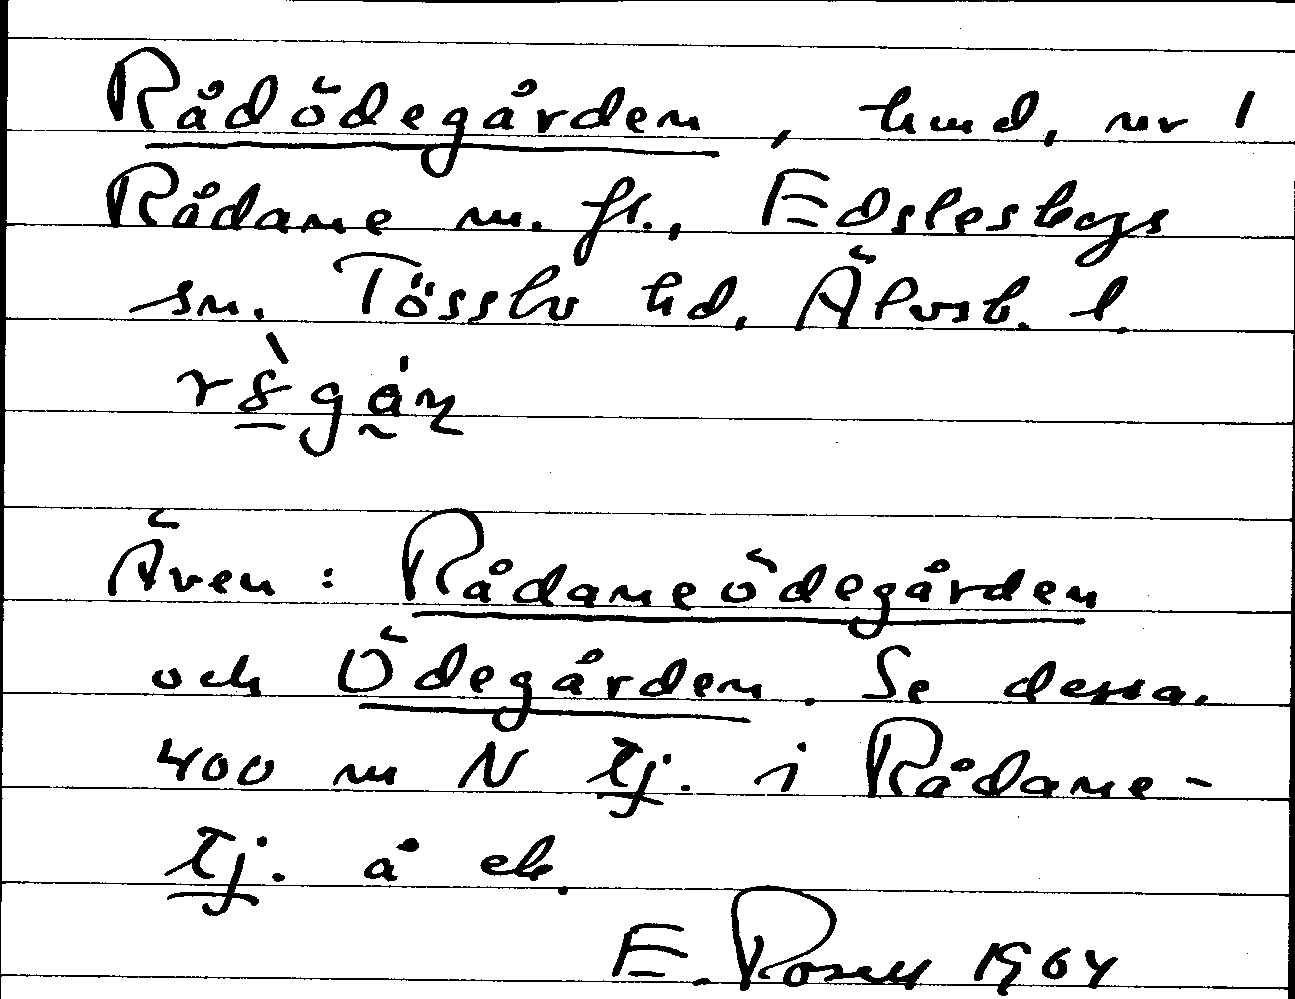 Rådödegården, hmd, nr 1
Rådane m. fl., Edsleskogs
sn. Tössbo hd. Älvsb. l.
Även: Rådaneödegården
och Ödegården. Se dessa.
400 m N tj. i Rådane-
tj. å ek.
E. Rosell 1964